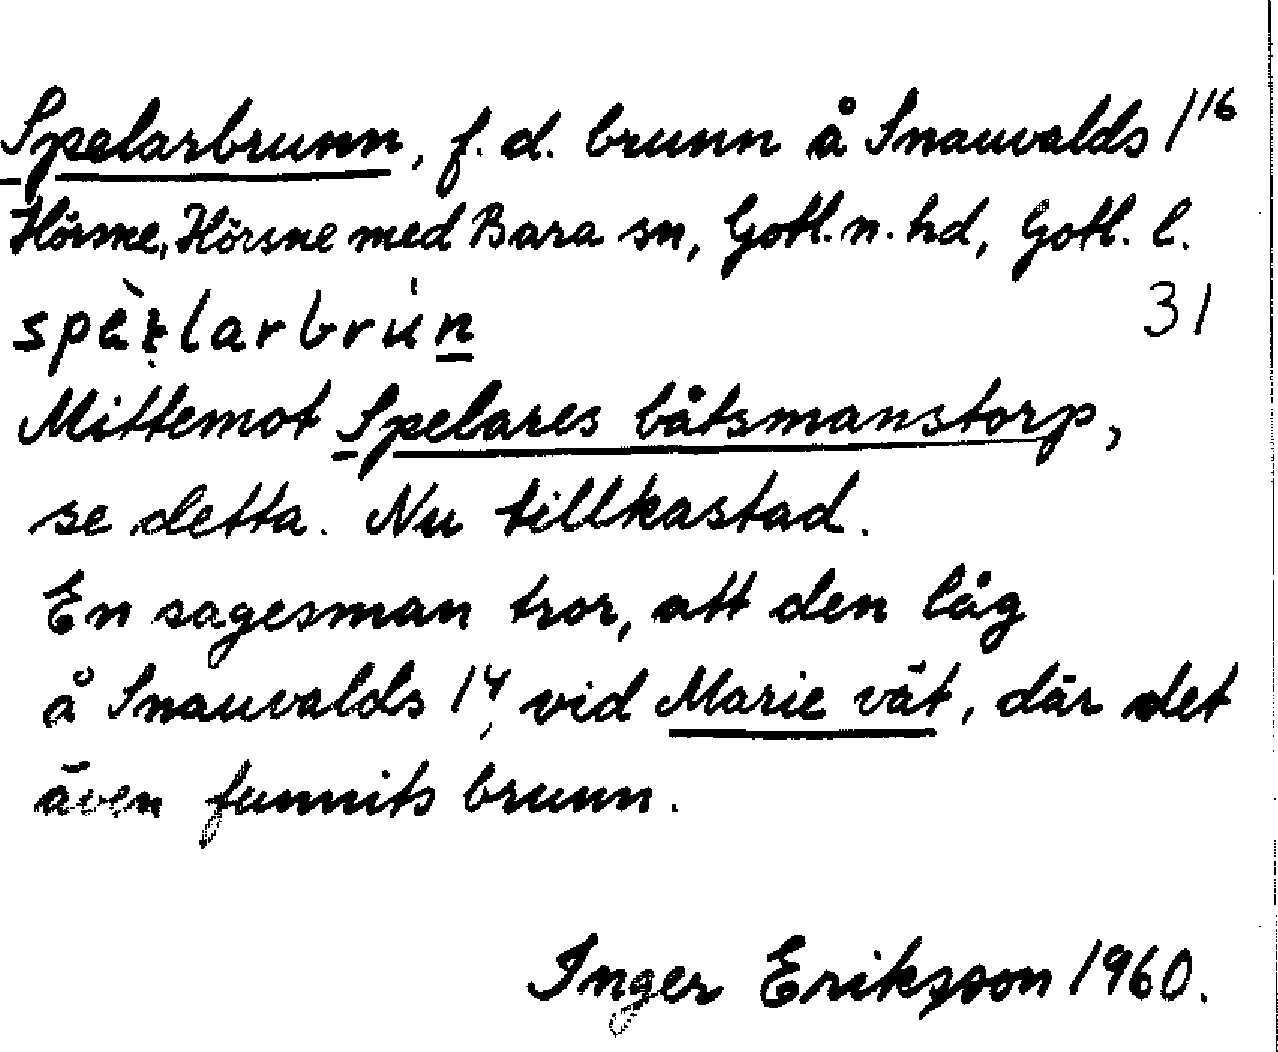 Spelarbrunn, f. d. brunn å Snauvalds 1¹⁶
Hörsne, Hörsne med Bara sn, Gotl. n. hd, Gotl. l.
31
Mittemot Spelares båtsmanstorp,
se detta. Nu tillkastad.
En sagesman tror, att den låg
å Snauvalds 1⁴, vid Marie vät, där det
även funnits brunn.
Inger Eriksson 1960.